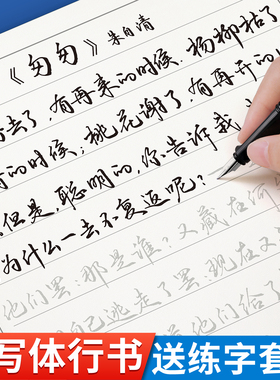 《匆匆》朱自清
去了，有再来的时候；杨柳枯了，
有再青的时候；桃花谢了，有再开的
时候。但是，聪明的，你告诉我，
为什么一去不复返呢？
他们罢：那是谁？又藏在何
自己逃走了罢：现在
他们给了
写体行书
送练字套